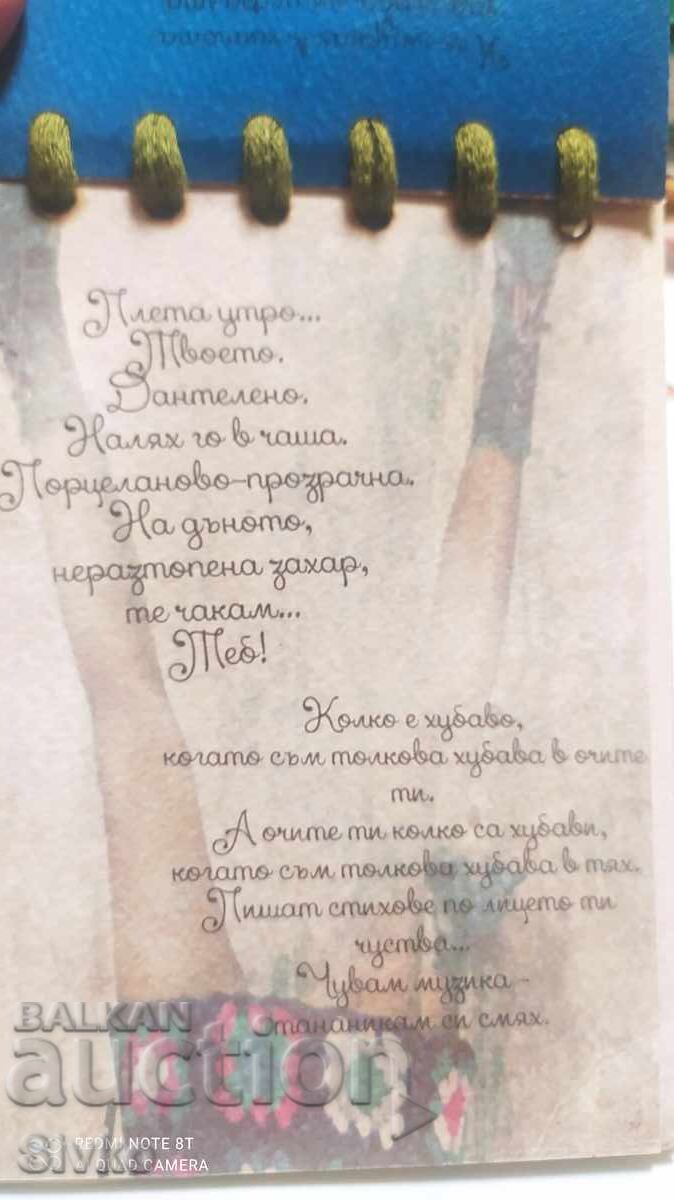 Плета утро...
Твоето.
Дантелено.
Налях го в чаша.
Порцеланово-прозрачна.
На дъното,
неразтопена захар,
те чакам...
Теб!
Колко е хубаво,
когато съм толкова хубава в очите
ти.
А очите ти колко са хубави,
когато съм толкова хубава в тях.
Пишат стихове по лицето ти
чуства...
Чувам музика -
тананикам си смях.
BALKAN
auction
REDMI NOTE 8T
AI QUAD CAMERA